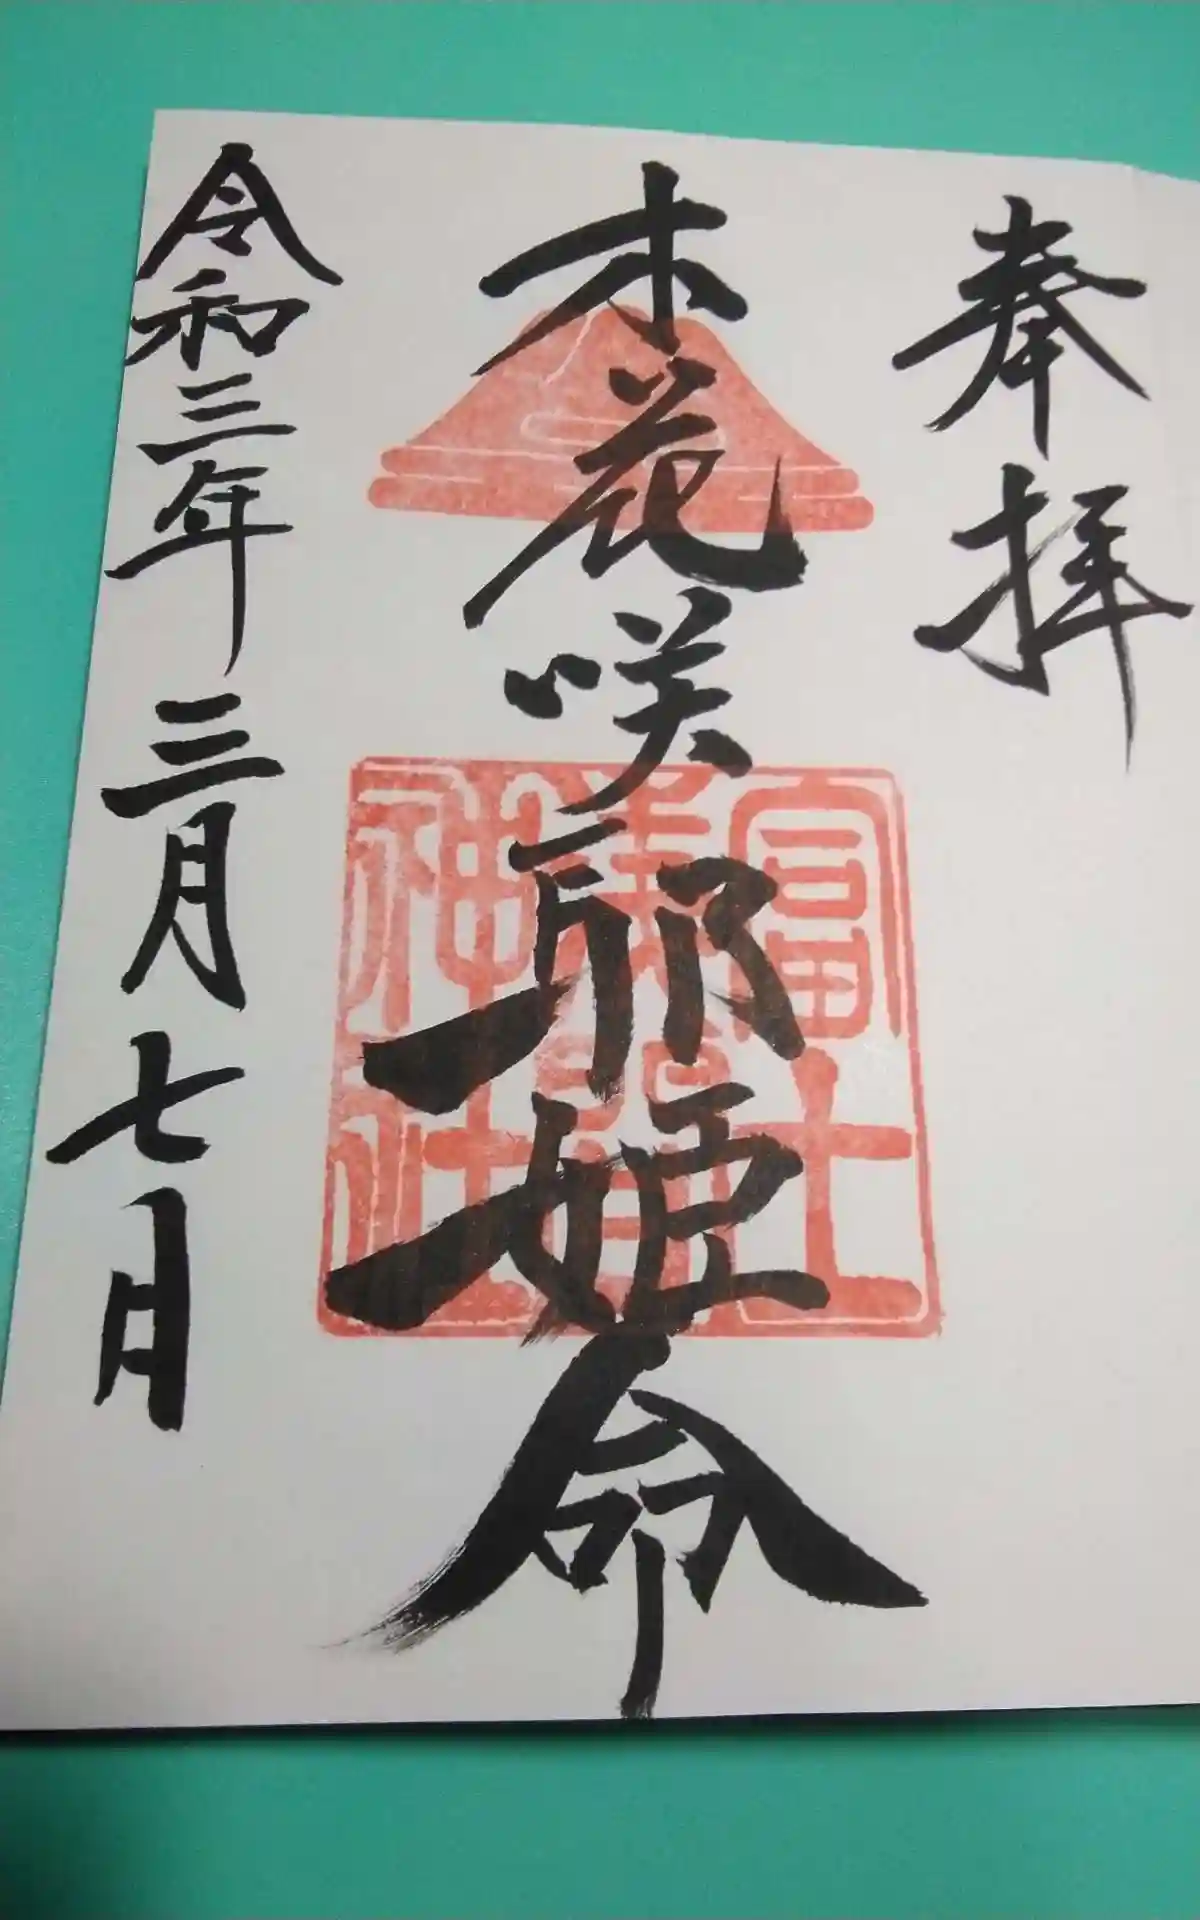 奉拝
木花咲耶姫命
富士
浅間
神社
令和三年三月七日